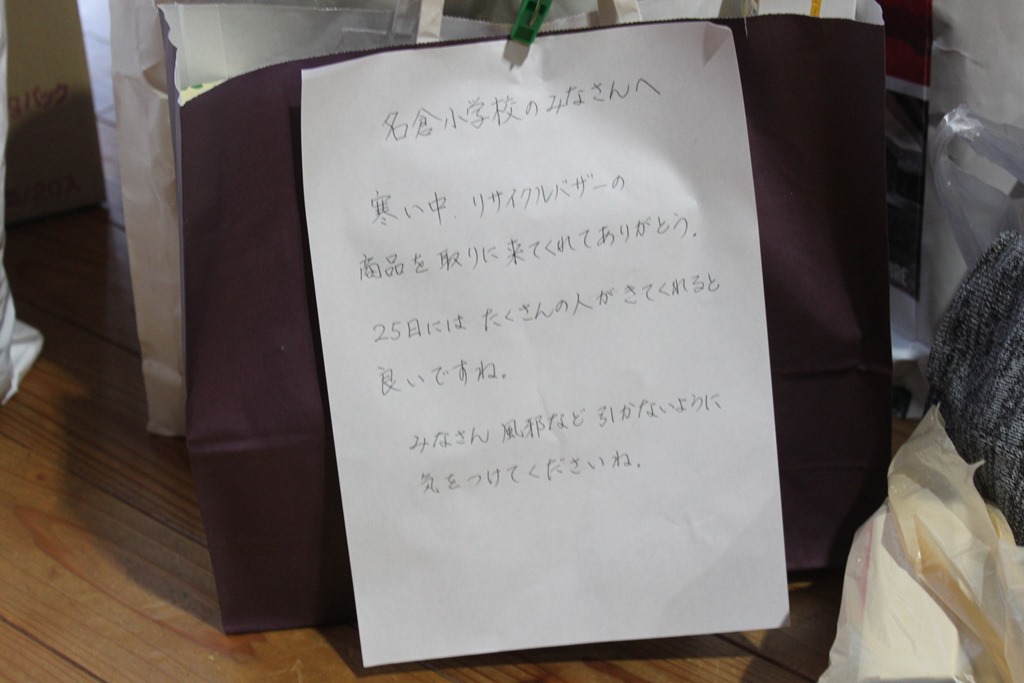 名倉小学校のみなさんへ
寒い中、リサイクルバザーの
商品を取りに来てくれてありがとう。
25日には たくさんの人が きてくれると
良いですね。
みなさん 風邪など 引かないように
気をつけてくださいね。
パック